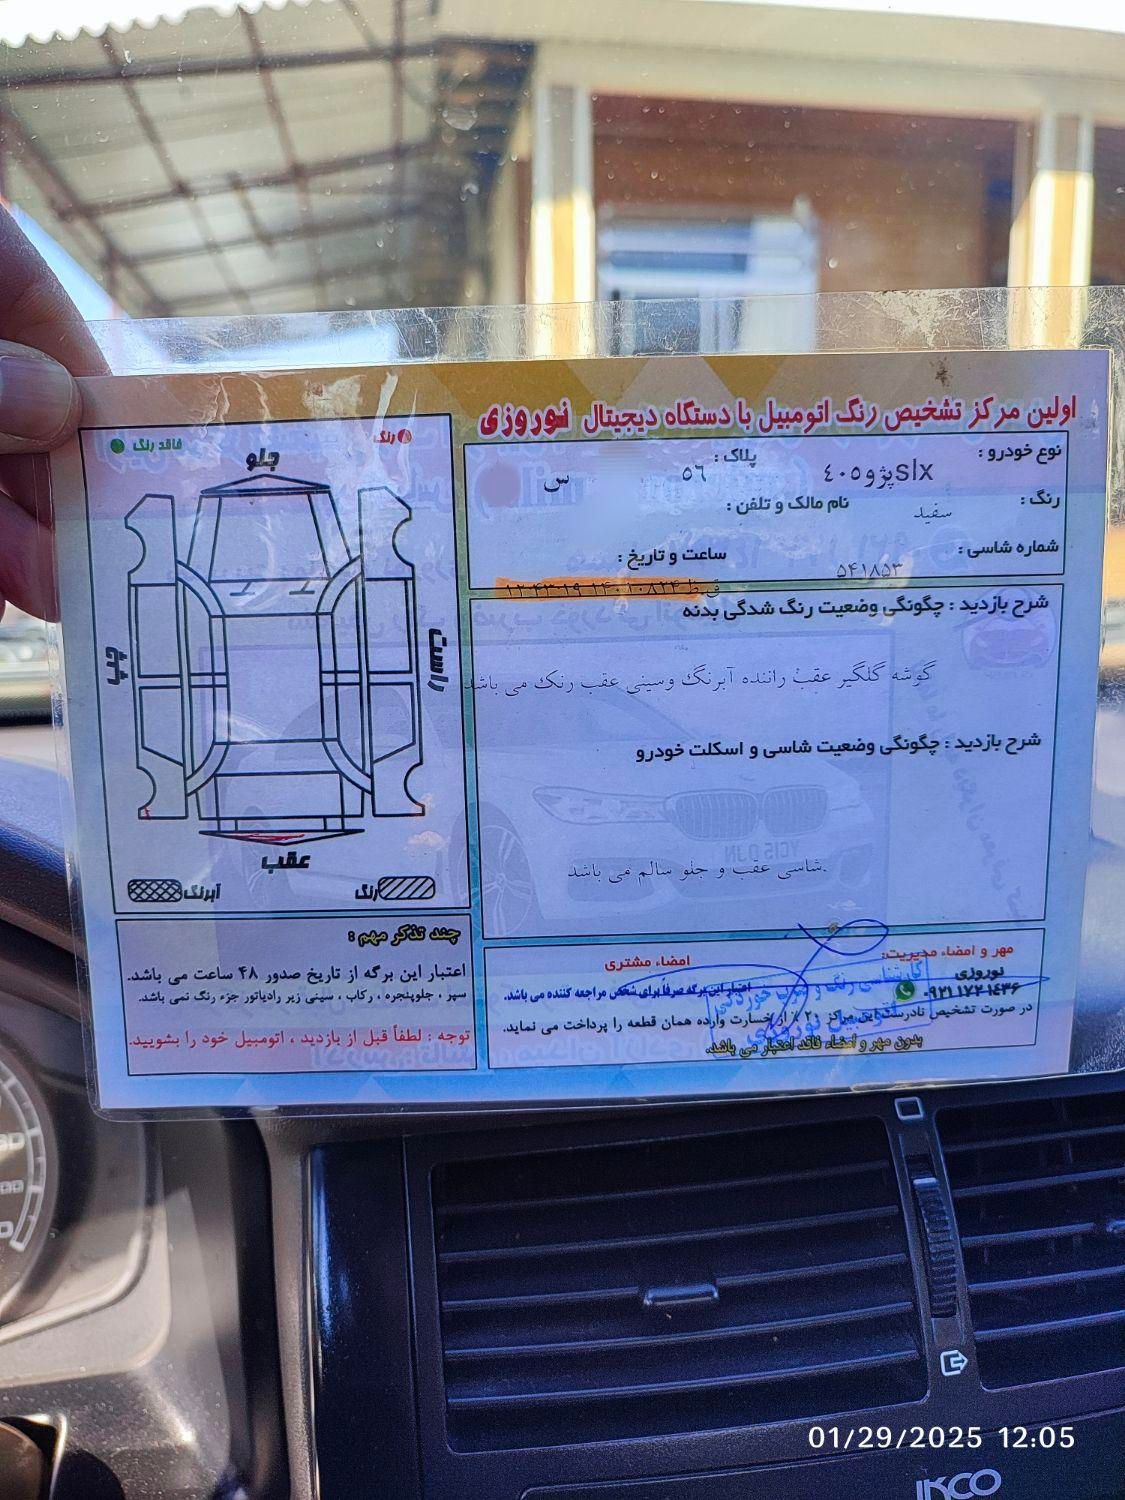 اولین مرکز تشخیص رنگ اتومبیل با دستگاه دیجیتال نوروزی
نوع خودرو : پژو٤٠٥slx پلاک : ٥٦ س
رنگ : سفید نام مالک و تلفن :
شماره شاسی : ٥٤١٨٥٣ ساعت و تاریخ :
شرح بازدید : چگونگی وضعیت رنگ شدگی بدنه
گوشه گلگیر عقب راننده آبرنگ وسینی عقب رنک می باشد
شرح بازدید : چگونگی وضعیت شاسی و اسکلت خودرو
شاسی عقب و جلو سالم می باشد.
مهر و امضاء مدیریت:
نوروزی
امضاء مشتری
اعتبار این برگه صرفاً برای شخص مراجعه کننده می باشد.
در صورت تشخیص نادرست این مرکز ۲۰ ٪ از خسارت وارده همان قطعه را پرداخت می نماید.
بدون مهر و امضاء فاقد اعتبار می باشد.
رنگ
فاقد رنگ
جلو
چپ
راست
عقب
رنگ
آبرنگ
چند تذکر مهم :
اعتبار این برگه از تاریخ صدور ۴۸ ساعت می باشد.
سپر ، جلوپنجره ، رکاب ، سینی زیر رادیاتور جزء رنگ نمی باشد.
توجه : لطفاً قبل از بازدید ، اتومبیل خود را بشویید.
01/29/2025 12:05
IKCO